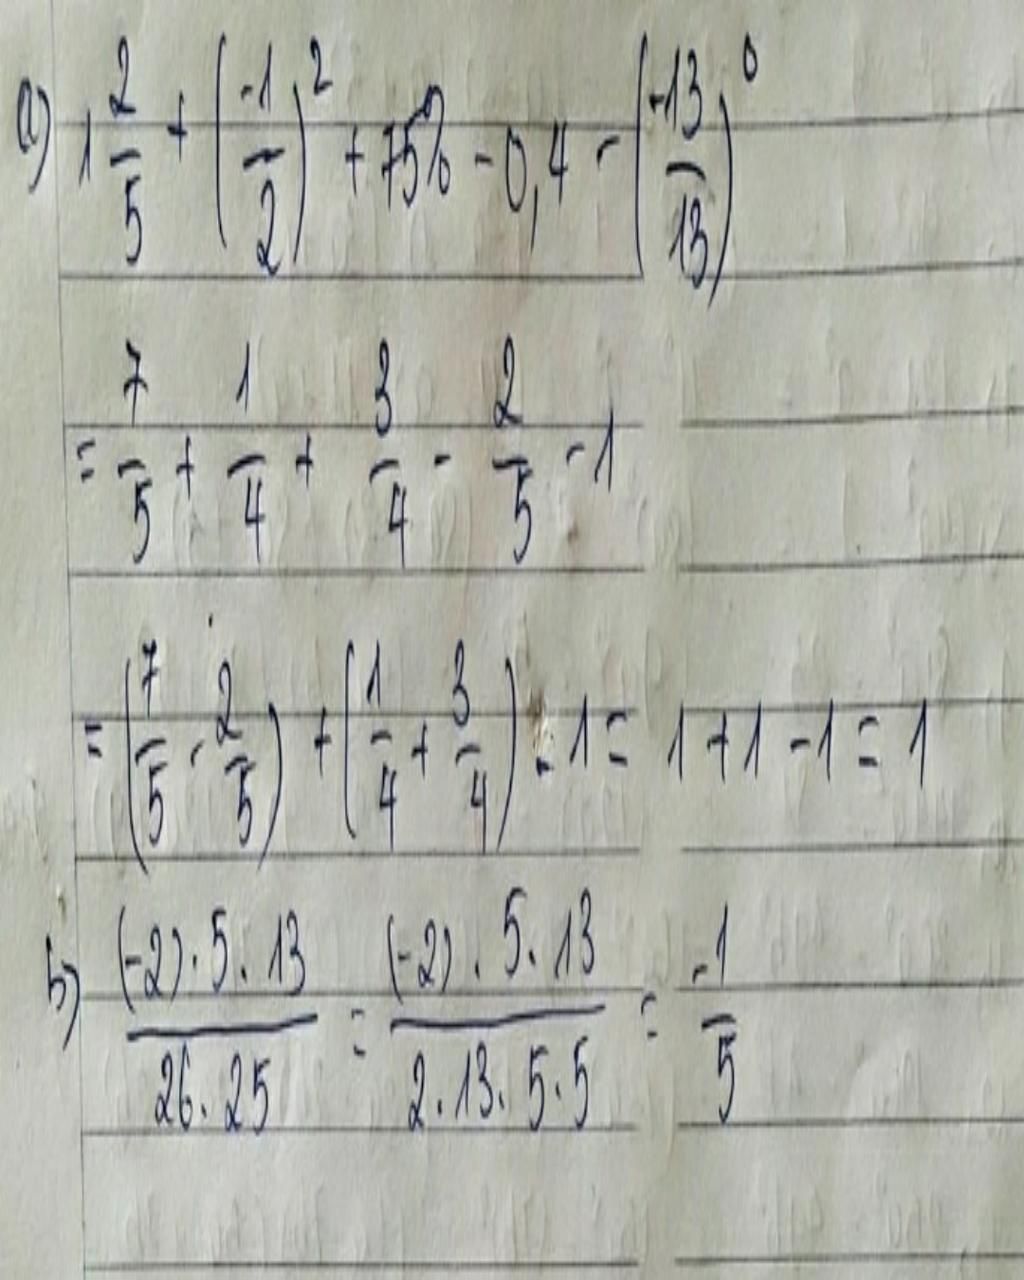 a) 1 2/5 + (-1/2)² + 75% - 0,4 - (-13/13)⁰
= 7/5 + 1/4 + 3/4 - 2/5 - 1
= (7/5 - 2/5) + (1/4 + 3/4) - 1 = 1 + 1 - 1 = 1
b) (-2).5.13/26.25 = (-2).5.13/2.13.5.5 = -1/5